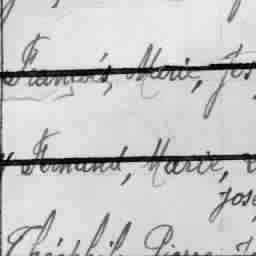 François, Marie, Jos
Fernand, Marie,
Jose
Théophile Pierre